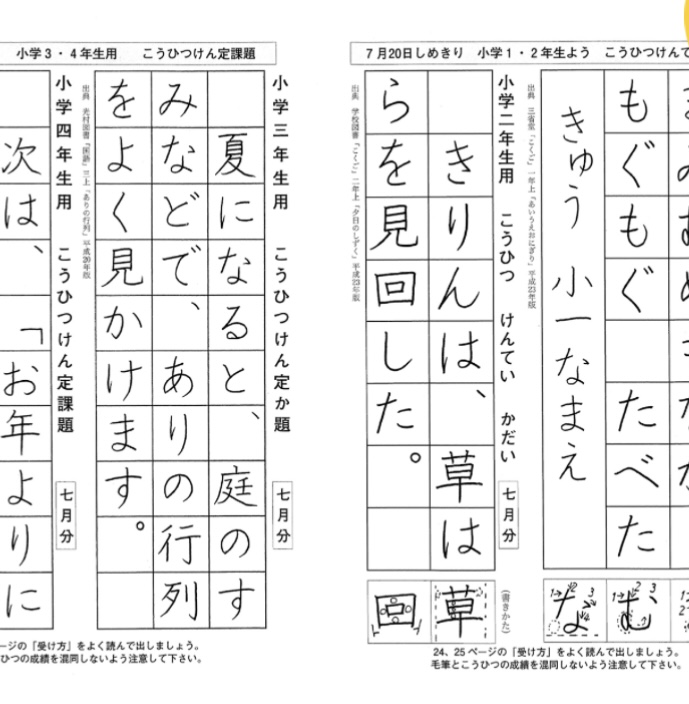 7月20日しめきり　小学1・2年生よう　こうひつけんて
もぐもぐ　たべた
きゅう　小一　なまえ
出典　三省堂「こくご」一年上「あいうえおにぎり」平成23年版
小学二年生用　こうひつ　けんてい　かだい　七月分
きりんは、草は
らを見回した。
出典　学校図書「こくご」二年上「夕日のしずく」平成23年版
(書きかた)
む
な
草
回
24、25ページの「受け方」をよく読んで出しましょう。
毛筆とこうひつの成績を混同しないよう注意して下さい。
小学3・4年生用　こうひつけん定課題
小学三年生用　こうひつけん定か題　七月分
夏になると、庭のす
みなどで、ありの行列
をよく見かけます。
出典　光村図書「国語」三上「ありの行列」平成20年版
小学四年生用　こうひつけん定課題　七月分
次は、「お年よりに
ージの「受け方」をよく読んで出しましょう。
ひつの成績を混同しないよう注意して下さい。